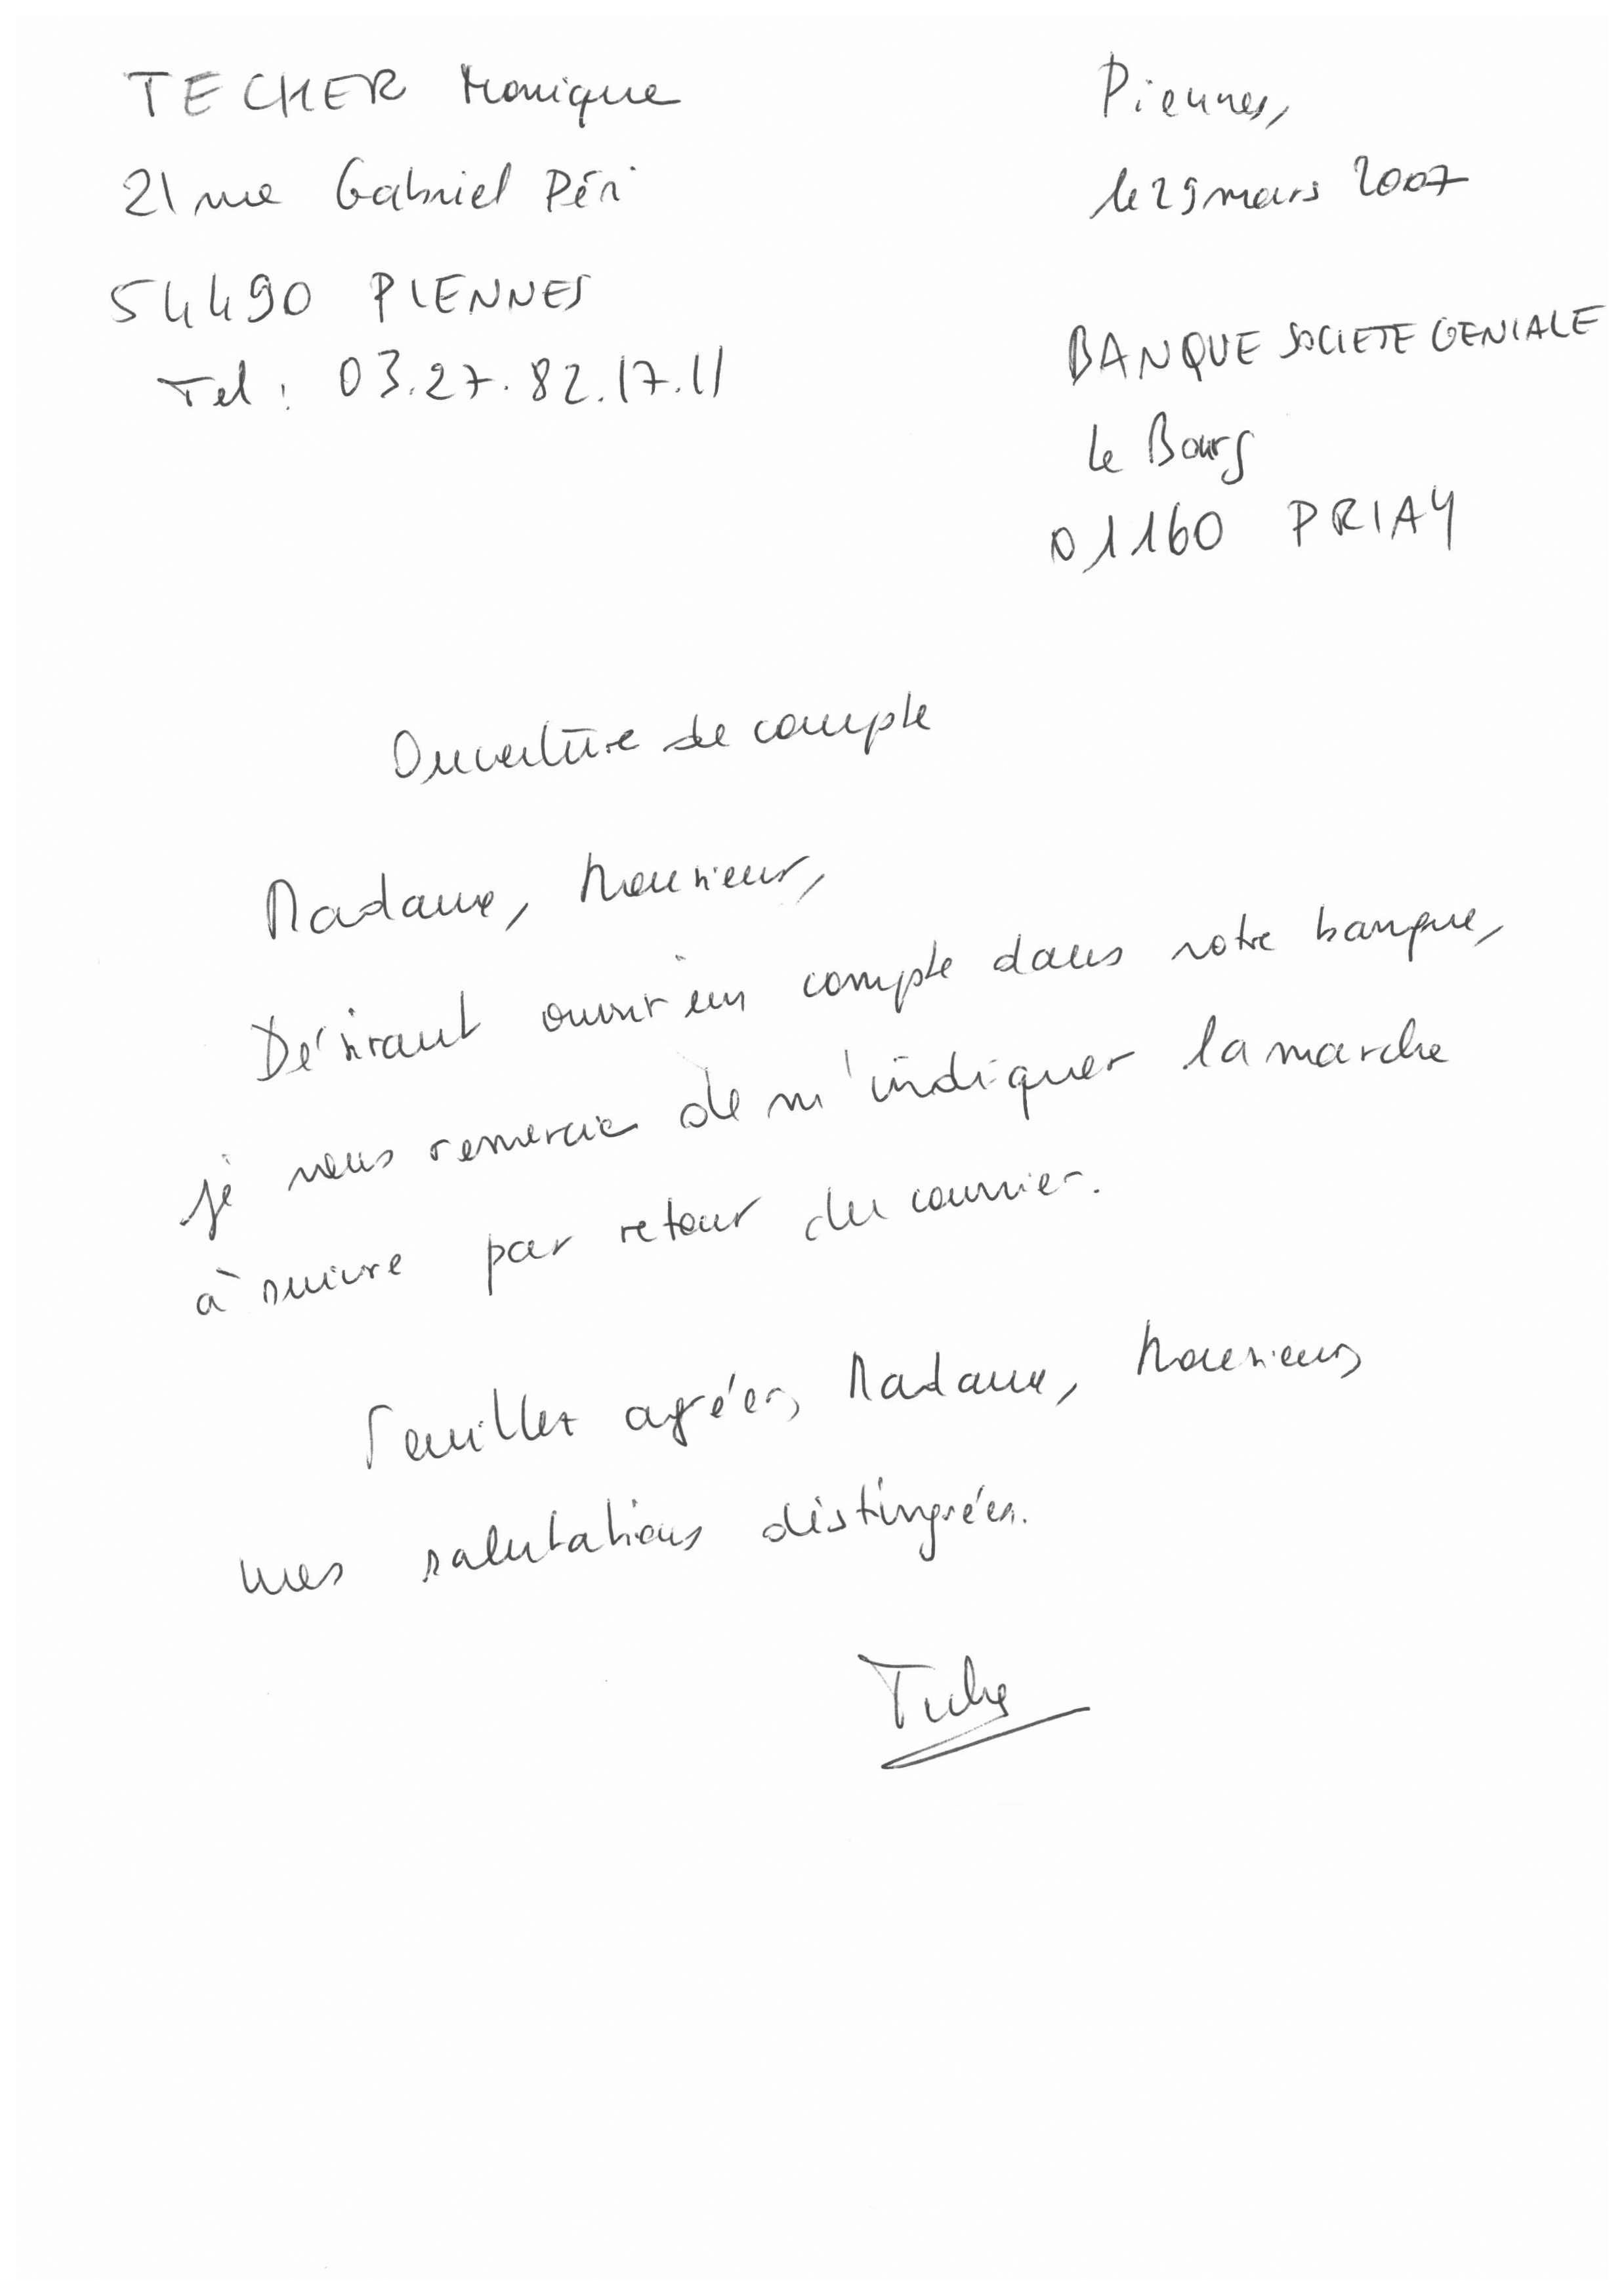 TECHER Monique
21 rue Gabriel Péri
54490 PIENNES
Tel : 03.27.82.17.11
Piennes,
le 29 mars 2007
BANQUE SOCIETE GENIALE
Le Bourg
01160 PRIAY
Ouverture de compte
Madame, Monsieur,
Désirant ouvrir un compte dans votre banque,
je vous remercie de m'indiquer la marche
à suivre par retour du courrier.
Veuillez agréer, Madame, Monsieur,
mes salutations distinguées.